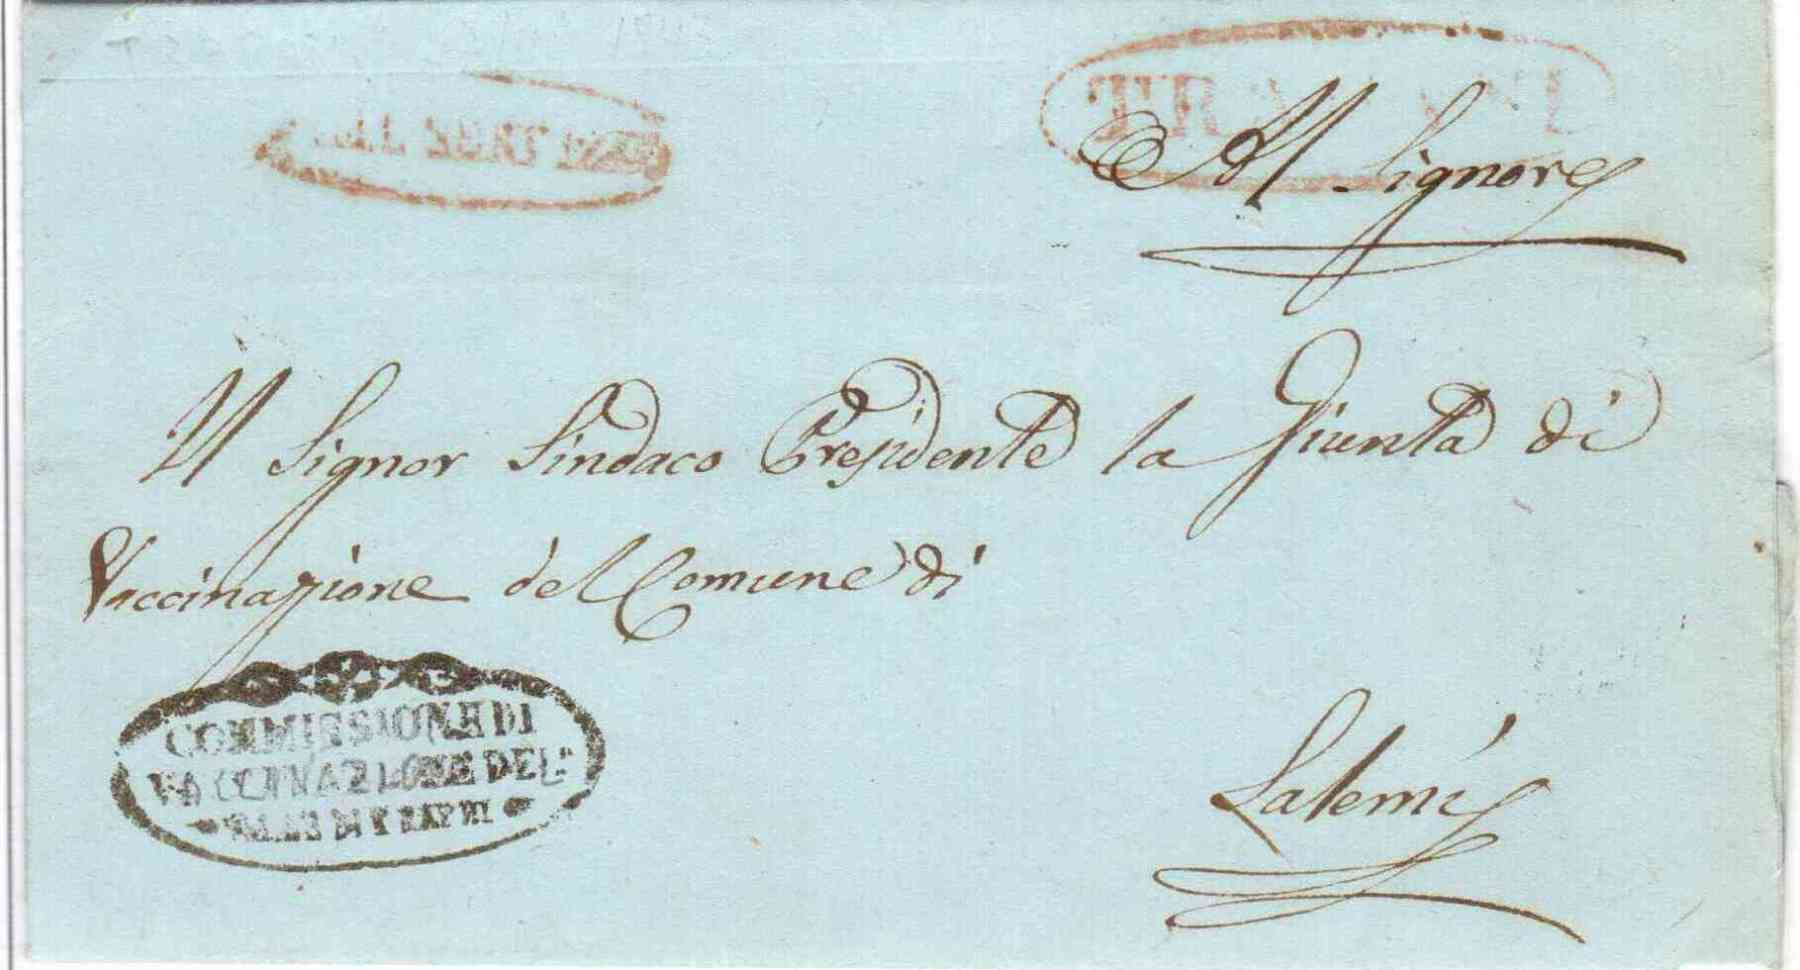 TRAPANI
Al Signore
Il Signor Sindaco Presidente la Giunta di
Vaccinazione del Comune di
COMMISSIONE DI
VACCINAZIONE DEL
VALLE DI TRAPANI
Salemi